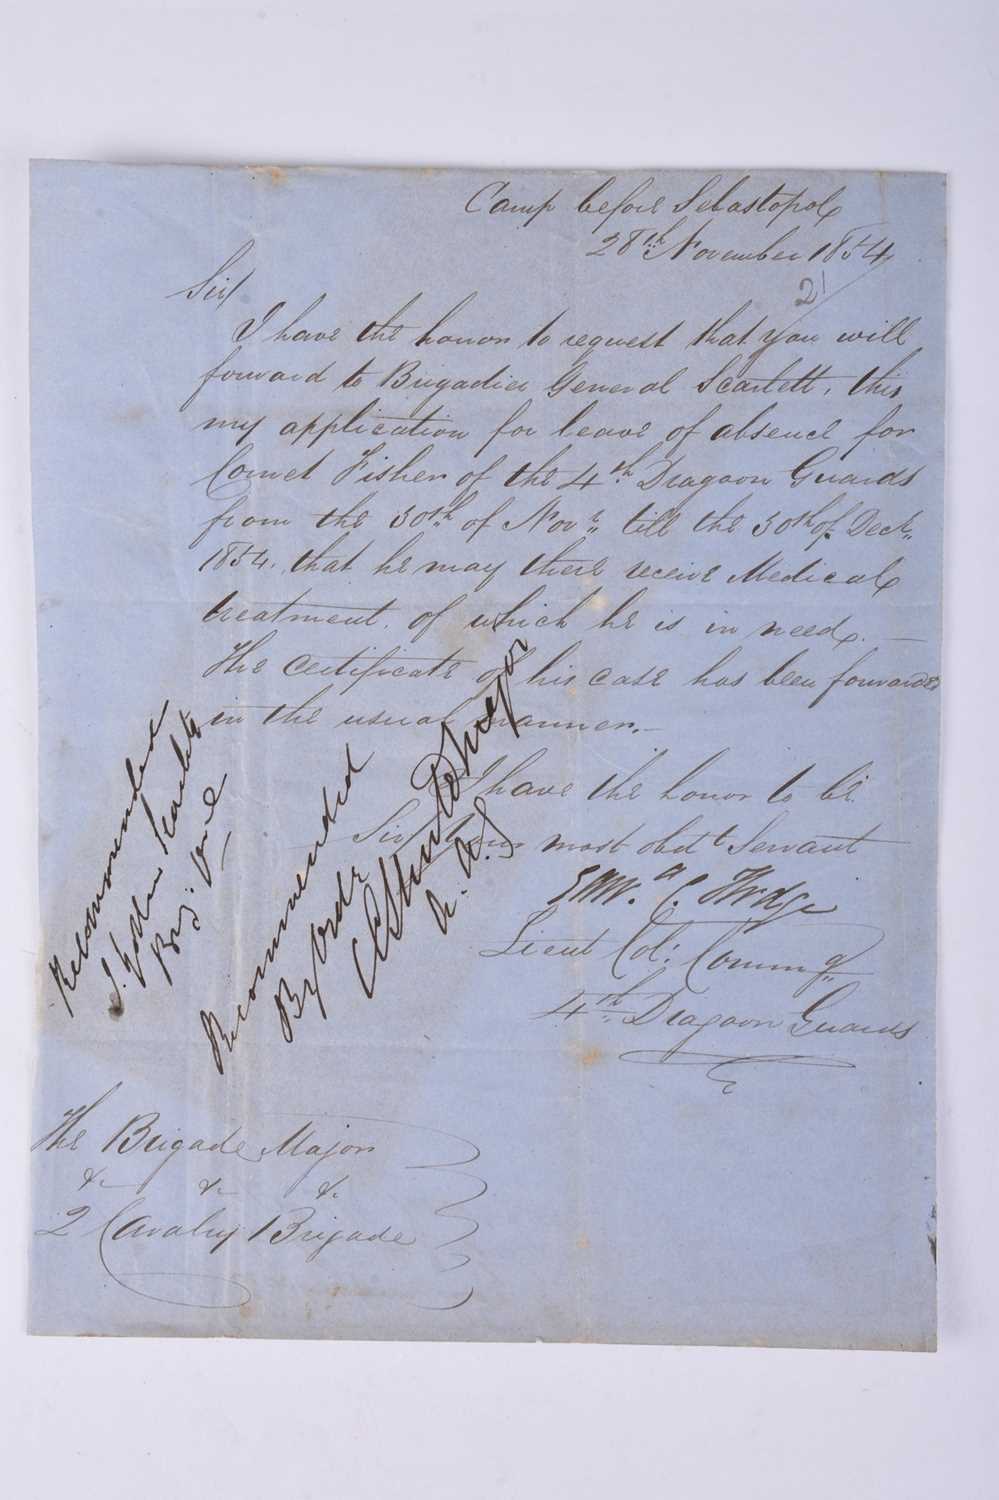 Camp before Sebastopol
28th November 1854
21
Sir/
I have the honor to request that you will
forward to Brigadier General Scarlett, this
my application for leave of absence for
Cornet Fisher of the 4th Dragoon Guards
from the 30th of Novr. till the 30th of Decr.
1854, that he may there receive Medical
treatment, of which he is in need. —
The certificate of his case has been forwarded
in the usual manner. —
I have the honor to be
Sir Your most obdt Servant
Edwd. C. Hodge
Lieut Col: Commg
4th Dragoon Guards
Recommended
J. Yorke Scarlett
Brig. Genl
Recommended
By order
A. A. G
The Brigade Major
&c &c &c
2 Cavalry Brigade